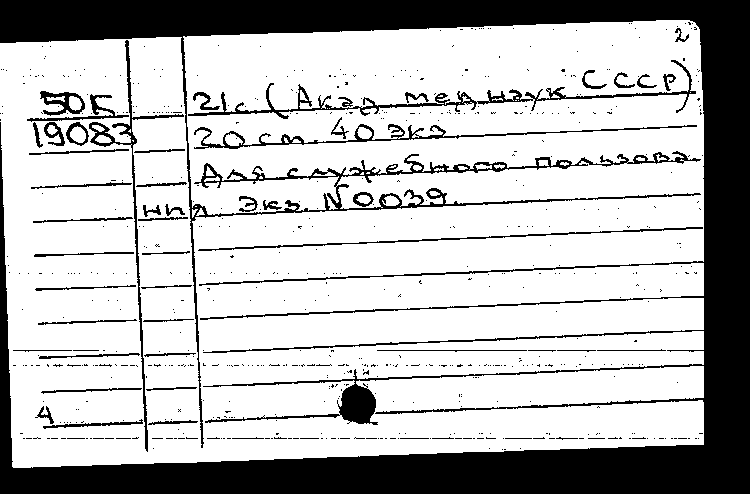 2
50К 21с (Акад мед наук СССР)
19083 20 см. 40 экз
Для служебного пользова-
ния Экз. №0039.
4